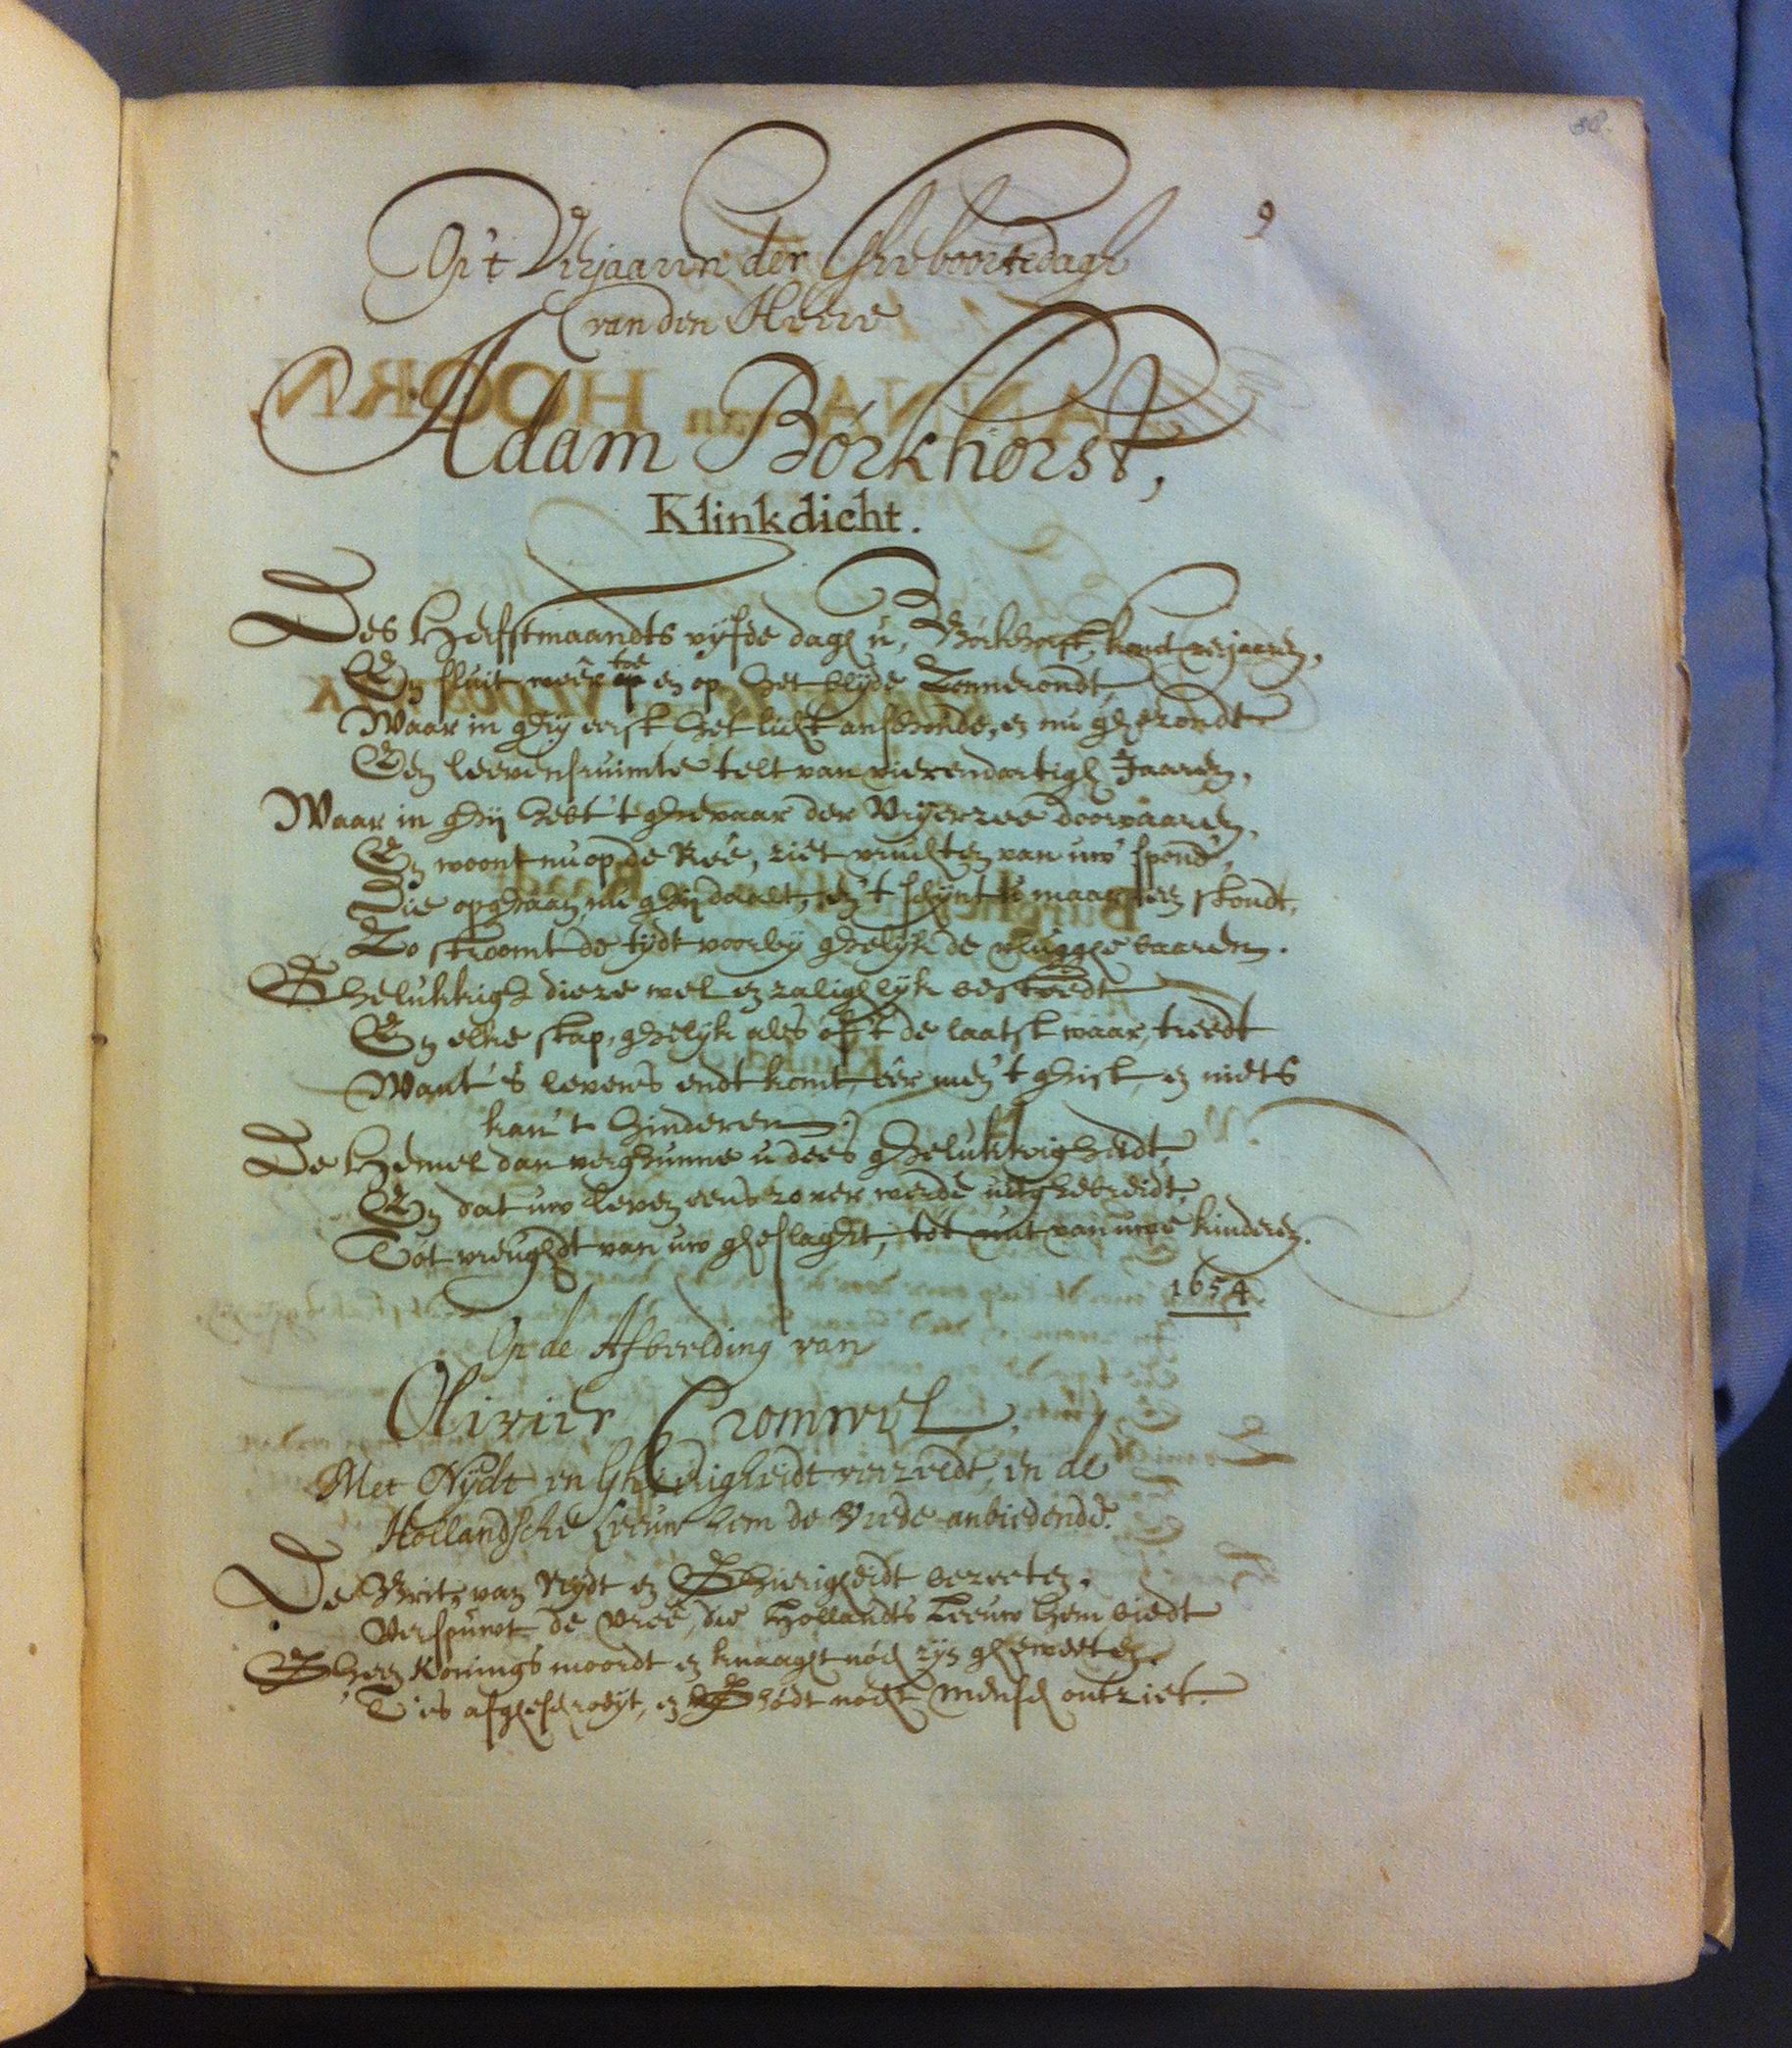 38.
9
Op't Verjaaren der Gheboortedagh
van den Heere
Adam Bórkhorst,
Klinkdicht.
Des Herfstmaandts vyfde dagh u, Bórkhorst, komt verjaaren,
En sluit weêr toe en op het blyde Zonnerondt,
Waar in ghy eerst het licht anschoude, en nu ghezondt
Een leevensruimte telt van vierendartigh Jaaren,
Waar in ghy hebt 't ghevaar der Vryerzee doorvaaren,
En woont nu op de Reê, ziet vruchten van uw' spond',
Die opghaan, nu ghy daalt, en 't schynt u maar een stondt,
Zo stroomt de tydt voorby ghelyk de vlugge baaren.
Ghelukkigh dieze wel en zalighlyk besteedt
En elke stap, ghelyk als óf 't de laatst waar, treedt
Want 's levens endt komt eêr men 't ghist, en niets
kan 't hinderen.
De Hemel dan verghunne u dees ghelukkigheidt,
En dat uw leven eens zo ver werde uitghebreidt,
Tót vreughdt van uw gheslaght, tót nut van uwe kinderen.
1654.
Op de Afbeelding van
Olivier Cromwel,
Met Nydt en Ghierigheidt verzeldt, en de
Hollandsche Leeuw hem de Vrede anbiedende.
De Brit, van Nydt en Ghierigheidt bezeeten,
Verspuwt de vreê, die Hollandts Leeuw hem biedt
Gheen Konings moordt en knaaght nóch zyn gheweeten.
'T is afgheschroeyt, en Ghódt nóch Mensch ontziet.